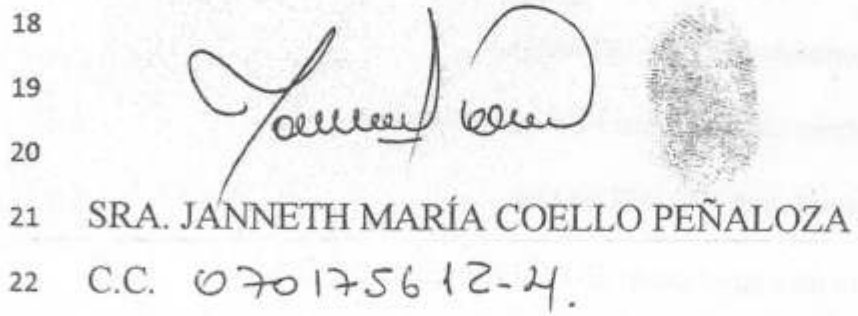 18
19
20
21 SRA. JANNETH MARÍA COELLO PEÑALOZA
22 C.C. 070175612-4.